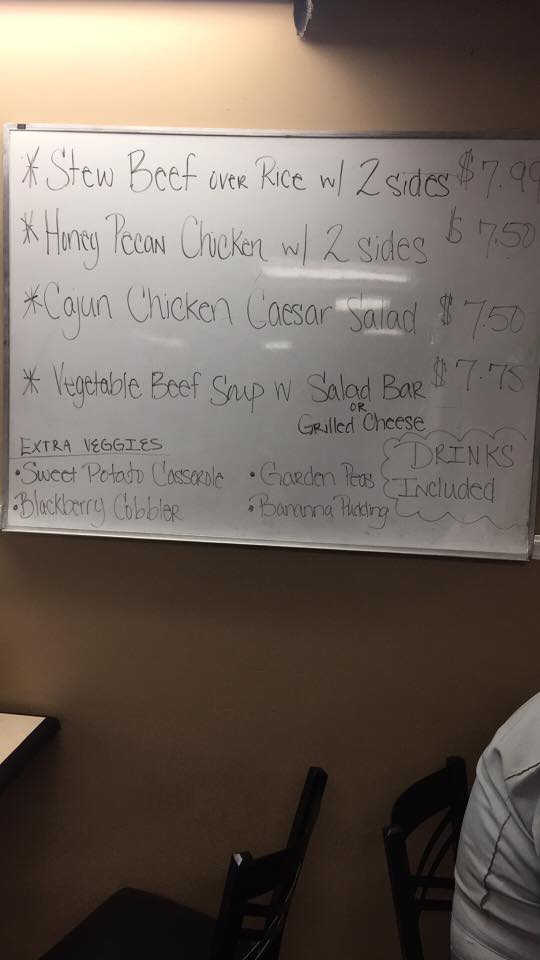 * Stew Beef over Rice w/ 2 sides $7.99
* Honey Pecan Chicken w/ 2 sides $7.50
* Cajun Chicken Caesar Salad $7.50
* Vegetable Beef Soup w Salad Bar $7.75
OR
Grilled Cheese
EXTRA VEGGIES
• Sweet Potato Casserole
• Blackberry Cobbler
• Garden Peas
• Bananna Pudding
DRINKS
Included